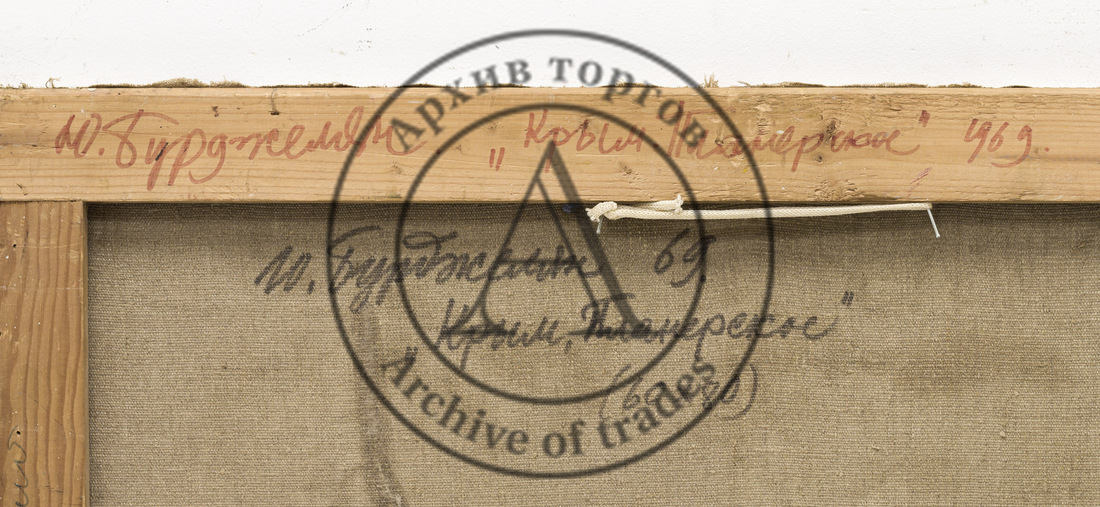 Ю. Бурджелян „Крым Планерское" 1969.
Архив торгов
Ю. Бурджелян 69.
„Крым, Планерское"
Archive of trades